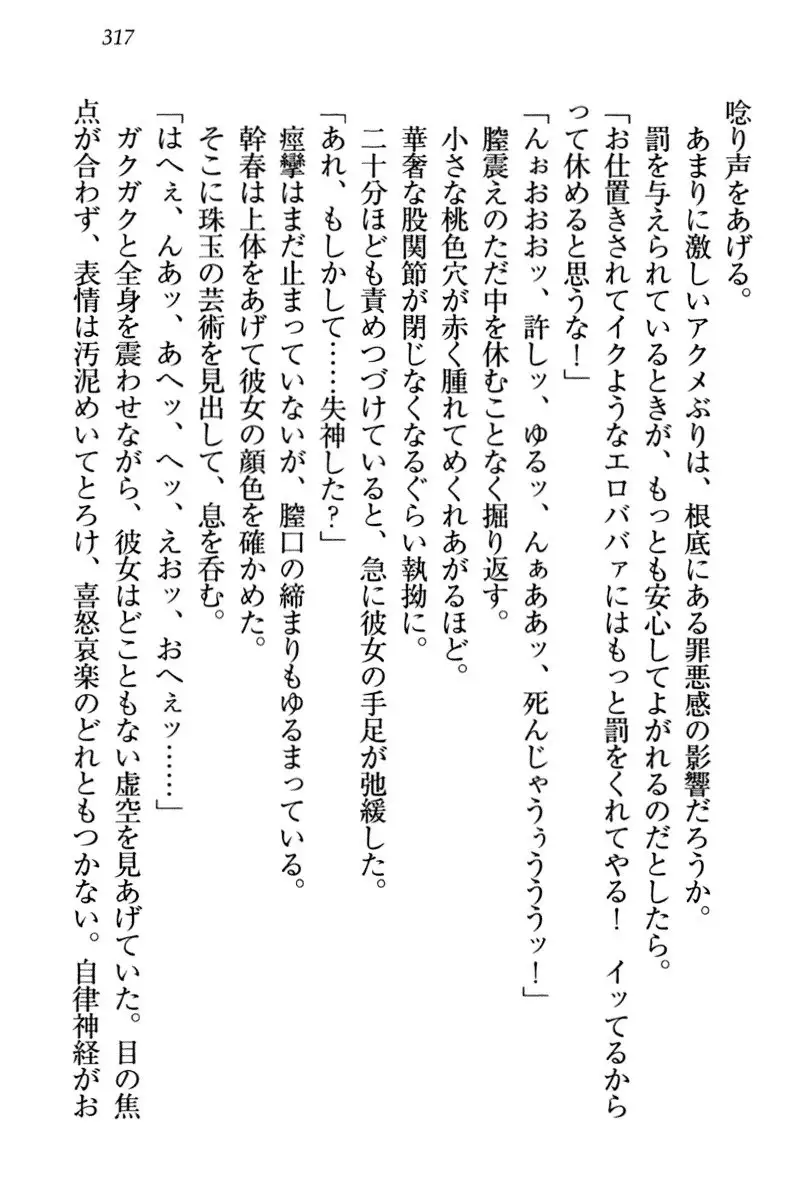 317
唸り声をあげる。
あまりに激しいアクメぶりは、根底にある罪悪感の影響だろうか。
罰を与えられているときが、もっとも安心してよがれるのだとしたら。
「お仕置きされてイクようなエロババァにはもっと罰をくれてやる！　イッてるから
って休めると思うな！」
「んぉおおおッ、許しッ、ゆるッ、んぁああッ、死んじゃうぅうううッ！」
膣震えのただ中を休むことなく掘り返す。
小さな桃色穴が赤く腫れてめくれあがるほど。
華奢な股関節が閉じなくなるぐらい執拗に。
二十分ほども責めつづけていると、急に彼女の手足が弛緩した。
「あれ、もしかして……失神した？」
痙攣はまだ止まっていないが、膣口の締まりもゆるまっている。
幹春は上体をあげて彼女の顔色を確かめた。
そこに珠玉の芸術を見出して、息を呑む。
「はへぇ、んあッ、あへッ、へッ、えおッ、おへぇッ……」
ガクガクと全身を震わせながら、彼女はどこともない虚空を見あげていた。目の焦
点が合わず、表情は汚泥めいてとろけ、喜怒哀楽のどれともつかない。自律神経がお